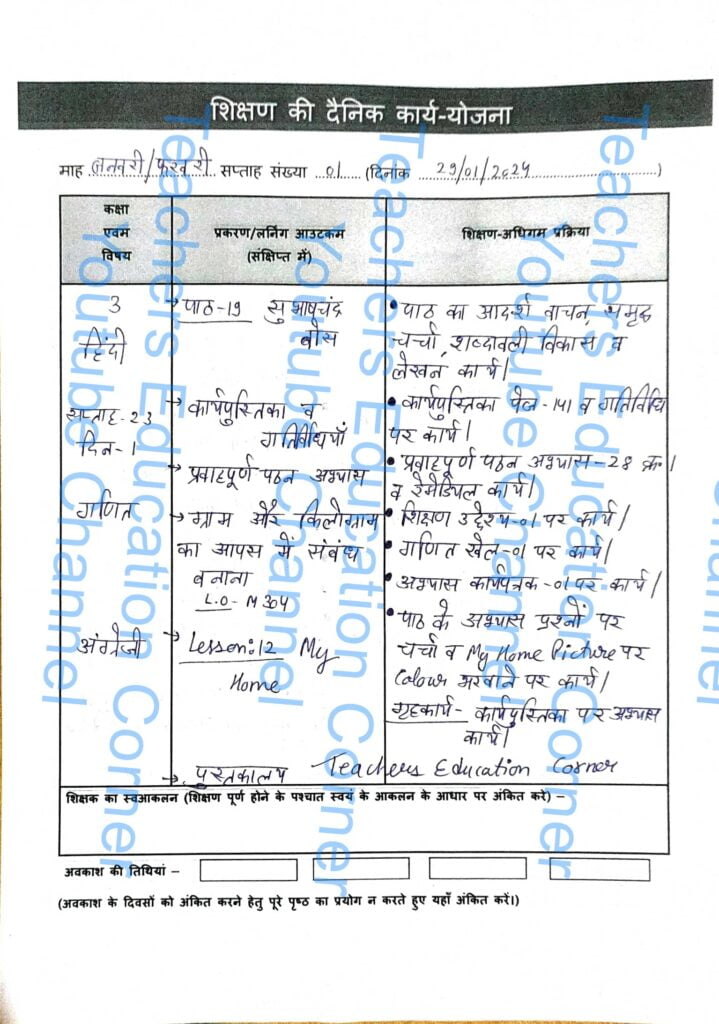 शिक्षण की दैनिक कार्य-योजना
माह जनवरी/फरवरी सप्ताह संख्या 01 (दिनांक 29/01/2024)
कक्षा
एवम
विषय
प्रकरण/लर्निंग आउटकम
(संक्षिप्त में)
शिक्षण-अधिगम प्रक्रिया
3
हिंदी
सप्ताह-23
दिन-1
→ पाठ-19 सुभाषचंद्र
बोस
→ कार्यपुस्तिका व
गतिविधियाँ
→ प्रवाहपूर्ण पठन अभ्यास
• पाठ का आदर्श वाचन, समूह
चर्चा, शब्दावली विकास व
लेखन कार्य।
• कार्यपुस्तिका पेज-141 व गतिविधि
पर कार्य।
• प्रवाहपूर्ण पठन अभ्यास-28 क्र.।
व रेमेडियल कार्य।
गणित
→ ग्राम और किलोग्राम
का आपस में संबंध
बनाना
L.O- M304
• शिक्षण उद्देश्य-01 पर कार्य।
• गणित खेल-01 पर कार्य।
• अभ्यास कार्यपत्रक-01 पर कार्य।
अंग्रेजी
→ Lesson:12 My
Home
• पाठ के अभ्यास प्रश्नों पर
चर्चा व My Home Picture पर
Colour भरवाने पर कार्य।
गृहकार्य- कार्यपुस्तिका पर अभ्यास
कार्य।
→ पुस्तकालय
Teachers Education Corner
शिक्षक का स्वआकलन (शिक्षण पूर्ण होने के पश्चात स्वयं के आकलन के आधार पर अंकित करे) –
अवकाश की तिथियां –
(अवकाश के दिवसों को अंकित करने हेतु पूरे पृष्ठ का प्रयोग न करते हुए यहाँ अंकित करें।)
Teachers Education Corner
Youtube Channel
Teachers Education Corner
Youtube Channel
Teachers Education Corner
Youtube Channel